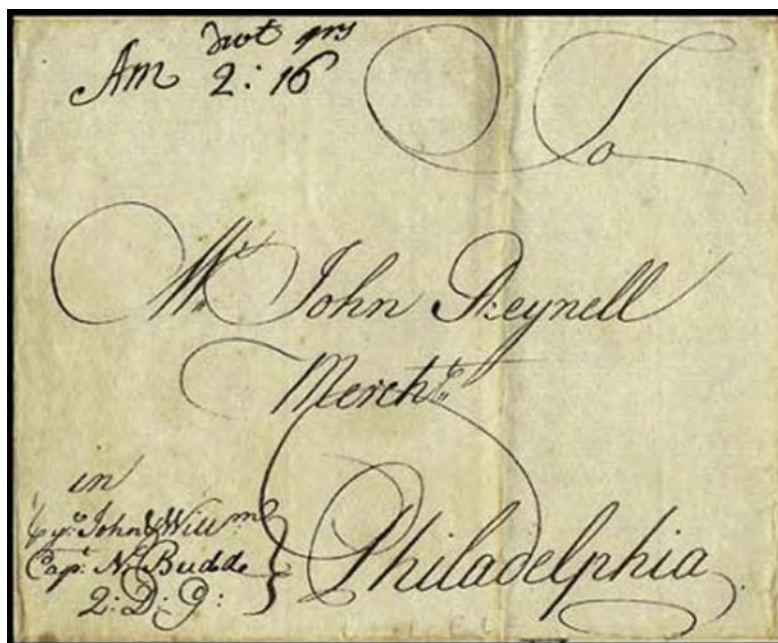 dwt grs
Am 2:16
To
Mr. John Reynell
Mercht.
in
John & Willm
Capt. N. Budde
Philadelphia
2: D: G: